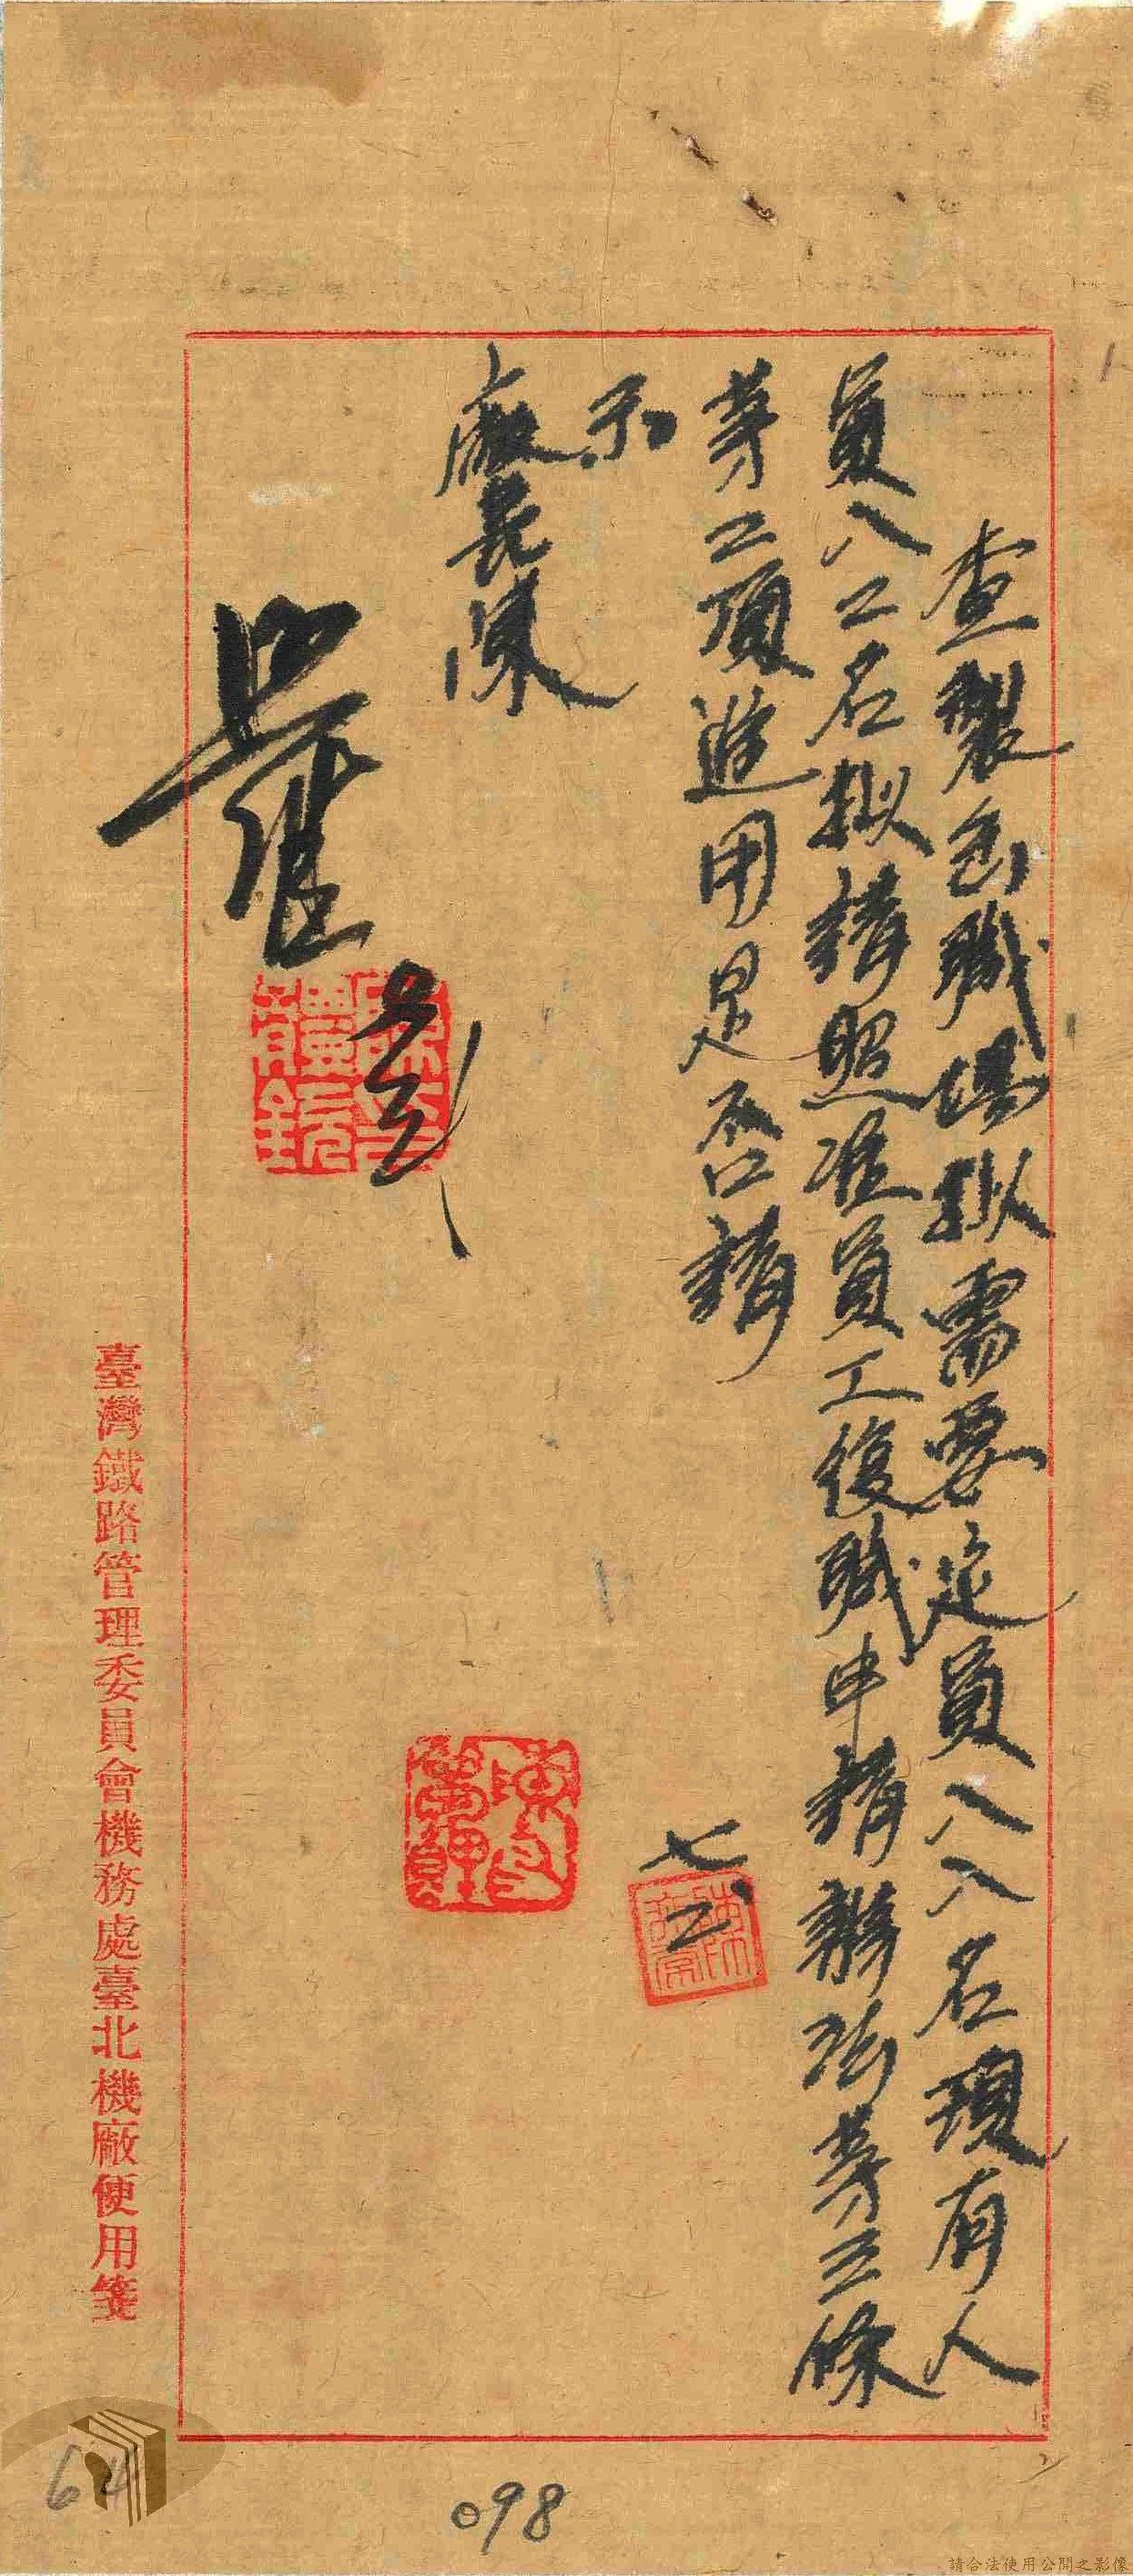 查製缶職場擬需要定員八八名現有人
員八二名擬請照准員工復職申請辦法第三條
第二項進用是否請
示
廠長陳
七、二
臺灣鐵路管理委員會機務處臺北機廠便用箋
64
098
請合法使用公開之影像